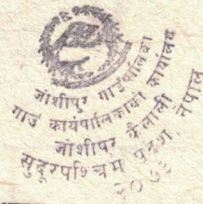 जोशीपुर गाउँपालिका
गाउँ कार्यपालिकाको कार्यालय
जोशीपुर कैलाली
सुदूरपश्चिम प्रदेश, नेपाल